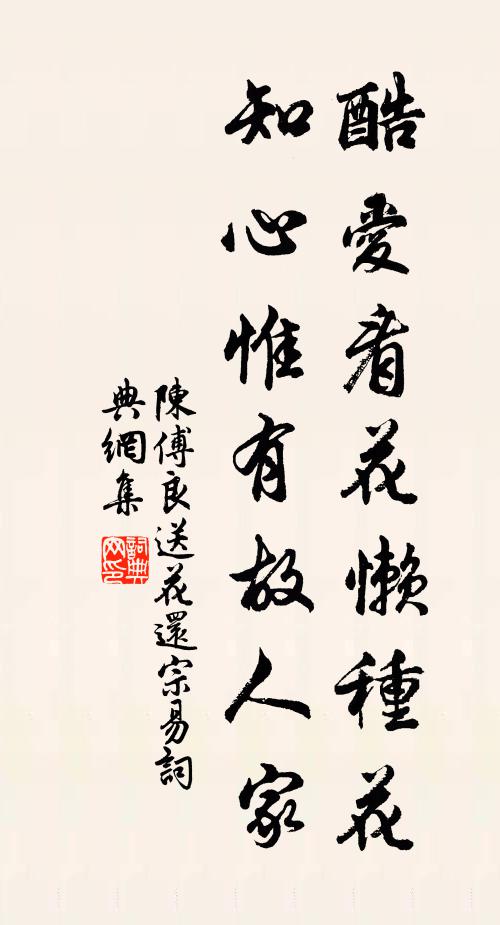 酷愛看花懶種花
知心惟有故人家
陳傅良送花還宗易詞
典網集
詞典網印